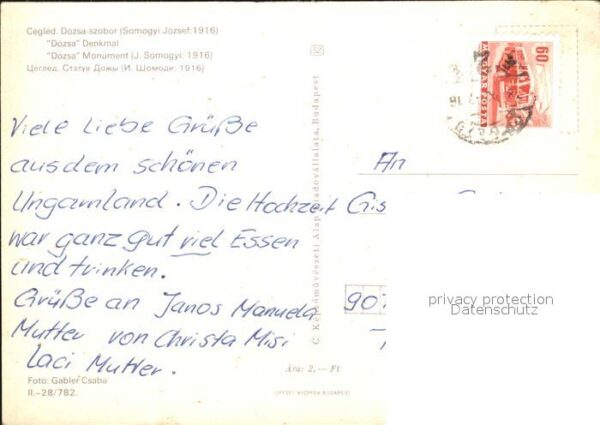 Cegléd. Dózsa-szobor (Somogyi József: 1916)
"Dózsa" Denkmal
"Dózsa" Monument (J. Somogyi: 1916)
Цеглед. Статуя Дожы (И. Шомоди: 1916)
Viele liebe Grüße
aus dem schönen
Ungarnland. Die Hochzeit
war ganz gut viel Essen
und trinken.
Grüße an Janos Manuela
Mutter von Christa Misi
Laci Mutter.
Foto: Gabler Csaba
II.–28/782.
C Képzőművészeti Alap Kiadóvállalata, Budapest
60
MAGYAR POSTA
An
Gis
907
privacy protection
Datenschutz
Ára: 2.– Ft
OFFSET NYOMDA BUDAPEST